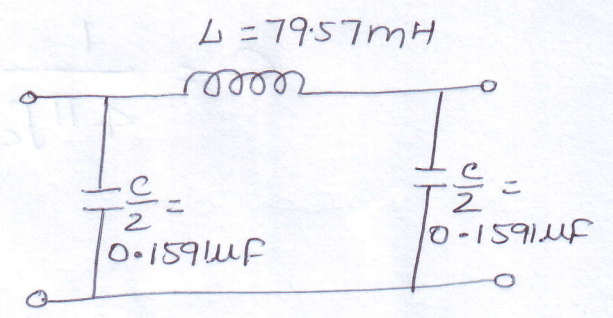 L = 79.57mH
C/2 =
0.1591µF
C/2 =
0.1591µF